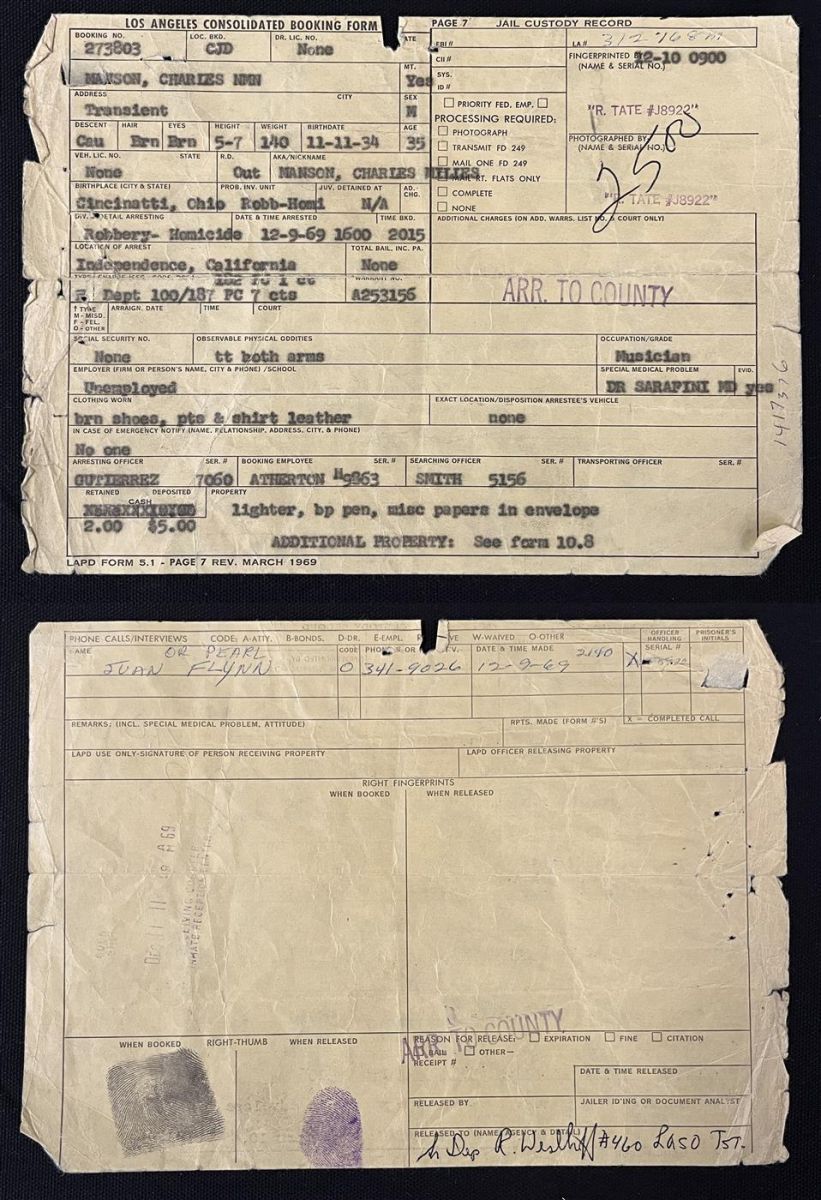 LOS ANGELES CONSOLIDATED BOOKING FORM PAGE 7 JAIL CUSTODY RECORD
BOOKING NO. LOC. BKD. DR. LIC. NO. ATE FBI # LA#
273803 CJD None
CII # FINGERPRINTED BY 12-10 0900
(NAME & SERIAL NO.)
MANSON, CHARLES NMN MT. Yes SYS. ID #
ADDRESS CITY SEX PRIORITY FED. EMP.
Transient M "R. TATE #J8922"
PROCESSING REQUIRED:
DESCENT HAIR EYES HEIGHT WEIGHT BIRTHDATE AGE PHOTOGRAPH PHOTOGRAPHED BY
Cau Brn Brn 5-7 140 11-11-34 35 TRANSMIT FD 249 (NAME & SERIAL NO.)
VEH. LIC. NO. STATE R.D. AKA/NICKNAME MAIL ONE FD 249
None Out MANSON, CHARLES MILLES MAIL RT. FLATS ONLY 2500
BIRTHPLACE (CITY & STATE) PROB. INV. UNIT JUV. DETAINED AT AD. CHG. COMPLETE TATE #J8922"
Cincinatti, Ohio Robb-Homi N/A NONE
DIV. & DETAIL ARRESTING DATE & TIME ARRESTED TIME BKD. ADDITIONAL CHARGES (ON ADD. WARRS. LIST NO. & COURT ONLY)
Robbery- Homicide 12-9-69 1600 2015
LOCATION OF ARREST TOTAL BAIL, INC. PA.
Independence, California None
182 PC 1 ct
F. Dept 100/187 PC 7 cts A253156 ARR. TO COUNTY
† TYPE ARRAIGN. DATE TIME COURT
M - MISD.
F - FEL.
O - OTHER
SOCIAL SECURITY NO. OBSERVABLE PHYSICAL ODDITIES OCCUPATION/GRADE
None tt both arms Musician
EMPLOYER (FIRM OR PERSON'S NAME, CITY & PHONE) /SCHOOL SPECIAL MEDICAL PROBLEM EVID.
Unemployed DR SARAFINI MD yes
CLOTHING WORN EXACT LOCATION/DISPOSITION ARRESTEE'S VEHICLE
brn shoes, pts & shirt leather none
IN CASE OF EMERGENCY NOTIFY (NAME, RELATIONSHIP, ADDRESS, CITY, & PHONE)
No one
ARRESTING OFFICER SER. # BOOKING EMPLOYEE SER. # SEARCHING OFFICER SER. # TRANSPORTING OFFICER SER. #
GUTIERREZ 7060 ATHERTON H9863 SMITH 5156
RETAINED DEPOSITED PROPERTY
CASH
lighter, bp pen, misc papers in envelope
2.00 $5.00
ADDITIONAL PROPERTY: See form 10.8
LAPD FORM 5.1 - PAGE 7 REV. MARCH 1969
PHONE CALLS/INTERVIEWS CODE: A-ATTY. B-BONDS. D-DR. E-EMPL. VE W-WAIVED O-OTHER OFFICER HANDLING PRISONER'S INITIALS
NAME CODE DATE & TIME MADE SERIAL #
OR PEARL 2140
JUAN FLYNN O 341-9026 12-9-69 X
REMARKS: (INCL. SPECIAL MEDICAL PROBLEM, ATTITUDE) RPTS. MADE (FORM #'S) X = COMPLETED CALL
LAPD USE ONLY-SIGNATURE OF PERSON RECEIVING PROPERTY LAPD OFFICER RELEASING PROPERTY
RIGHT FINGERPRINTS
WHEN BOOKED WHEN RELEASED
ARR TO COUNTY
WHEN BOOKED RIGHT-THUMB WHEN RELEASED REASON FOR RELEASE: EXPIRATION FINE CITATION
BAIL OTHER—
RECEIPT #
DATE & TIME RELEASED
RELEASED BY JAILER ID'ING OR DOCUMENT ANALYST
RELEASED TO (NAME, AGENCY & DETAIL)